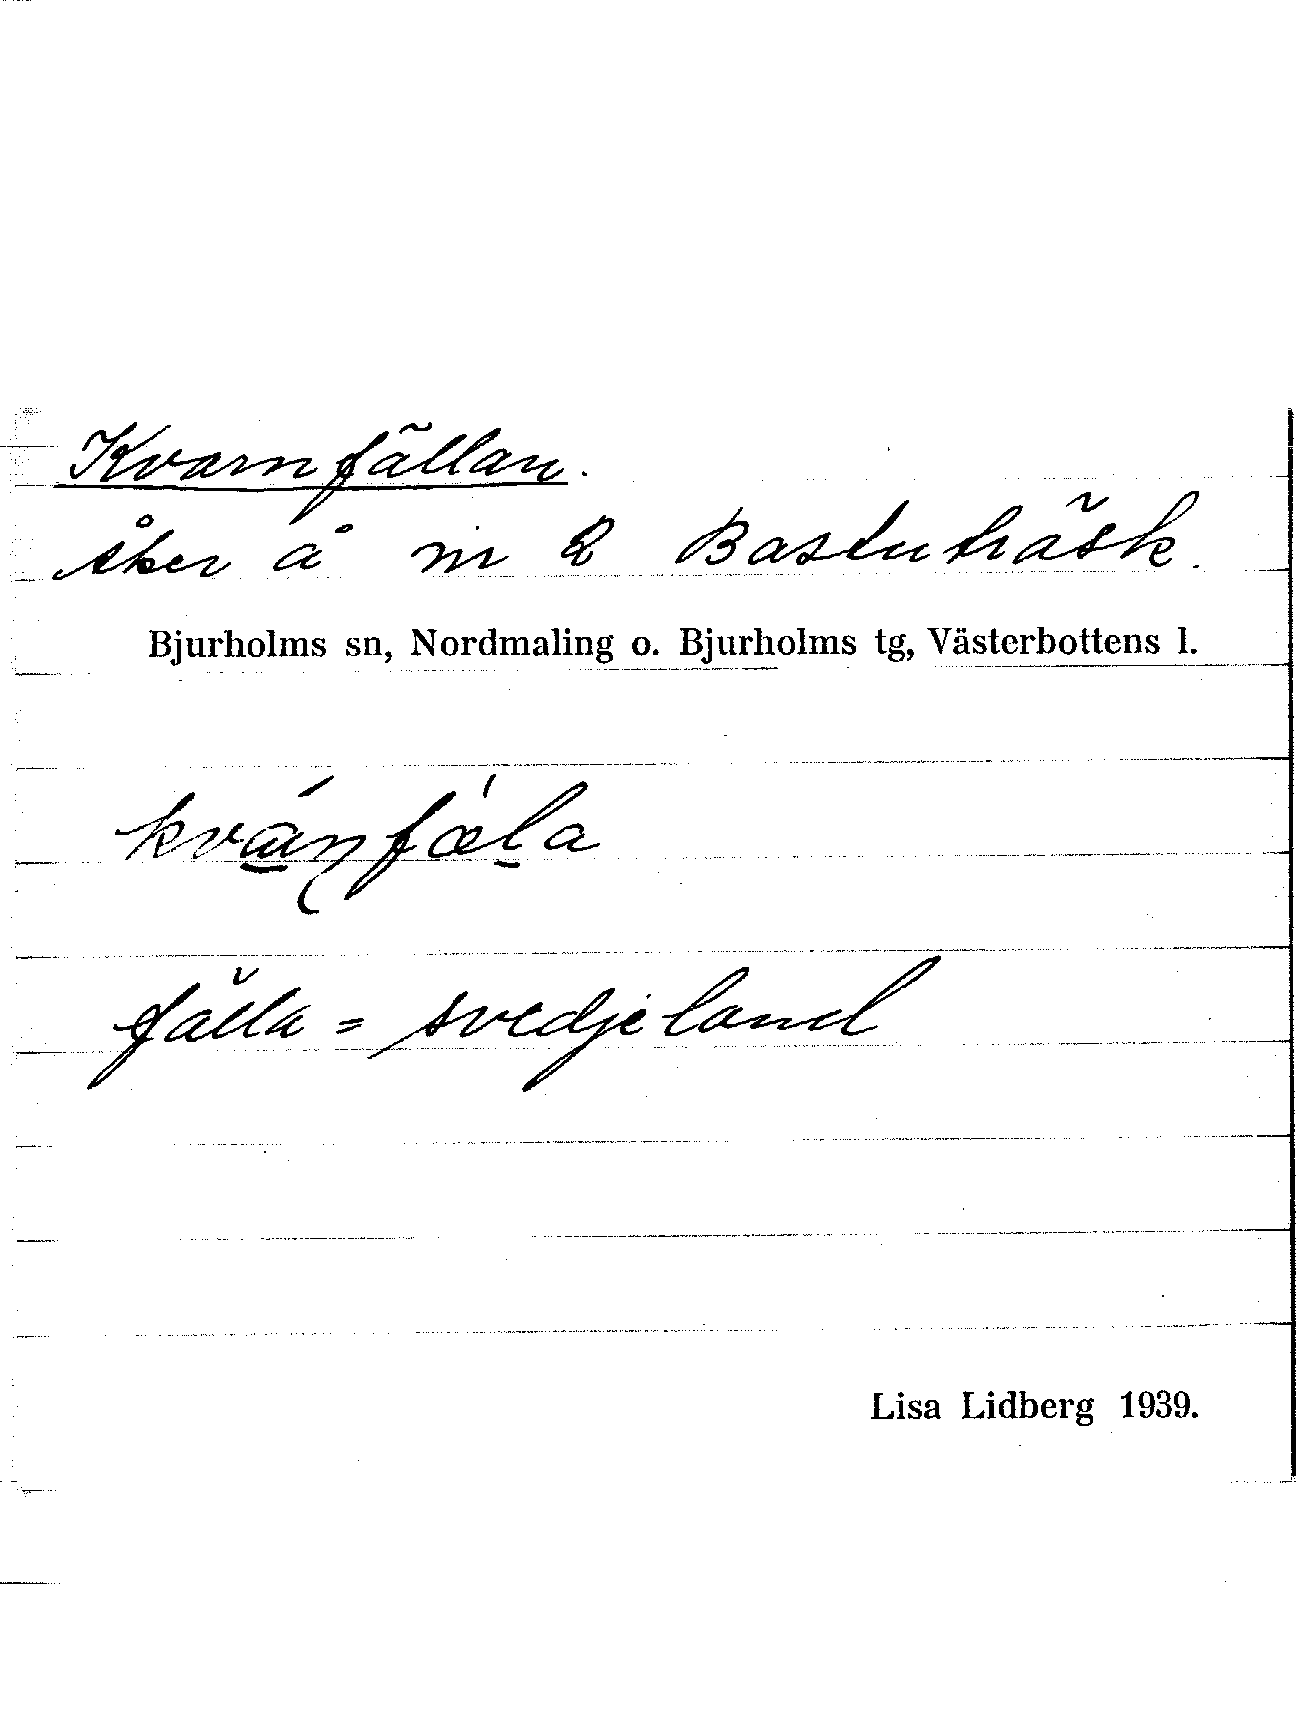 Kvarnfällan.
åker å nr 2 Bastuträsk.
Bjurholms sn, Nordmaling o. Bjurholms tg, Västerbottens l.
kvá̱ṇfǽḻa
fälla = svedjeland
Lisa Lidberg 1939.